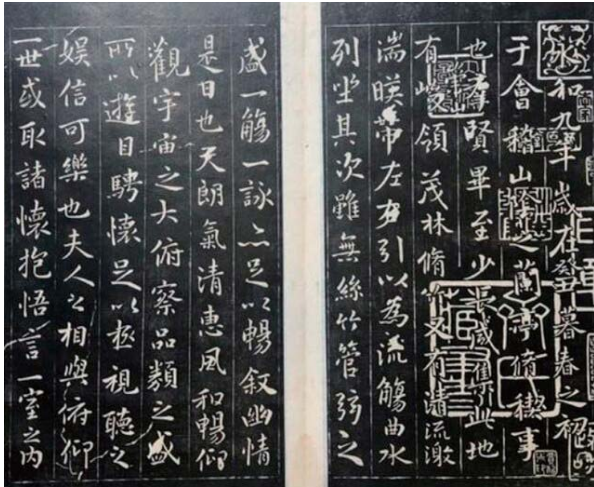 永和九年歲在癸丑暮春之初
于會稽山陰之蘭亭脩稧事
也羣賢畢至少長咸集此地
有峻領茂林脩竹又有清流激
湍暎帶左右引以為流觴曲水
列坐其次雖無絲竹管弦之
盛一觴一詠亦足以暢叙幽情
是日也天朗氣清惠風和暢仰
觀宇宙之大俯察品類之盛
所以遊目騁懷足以極視聽之
娛信可樂也夫人之相與俯仰
一世或取諸懷抱悟言一室之內